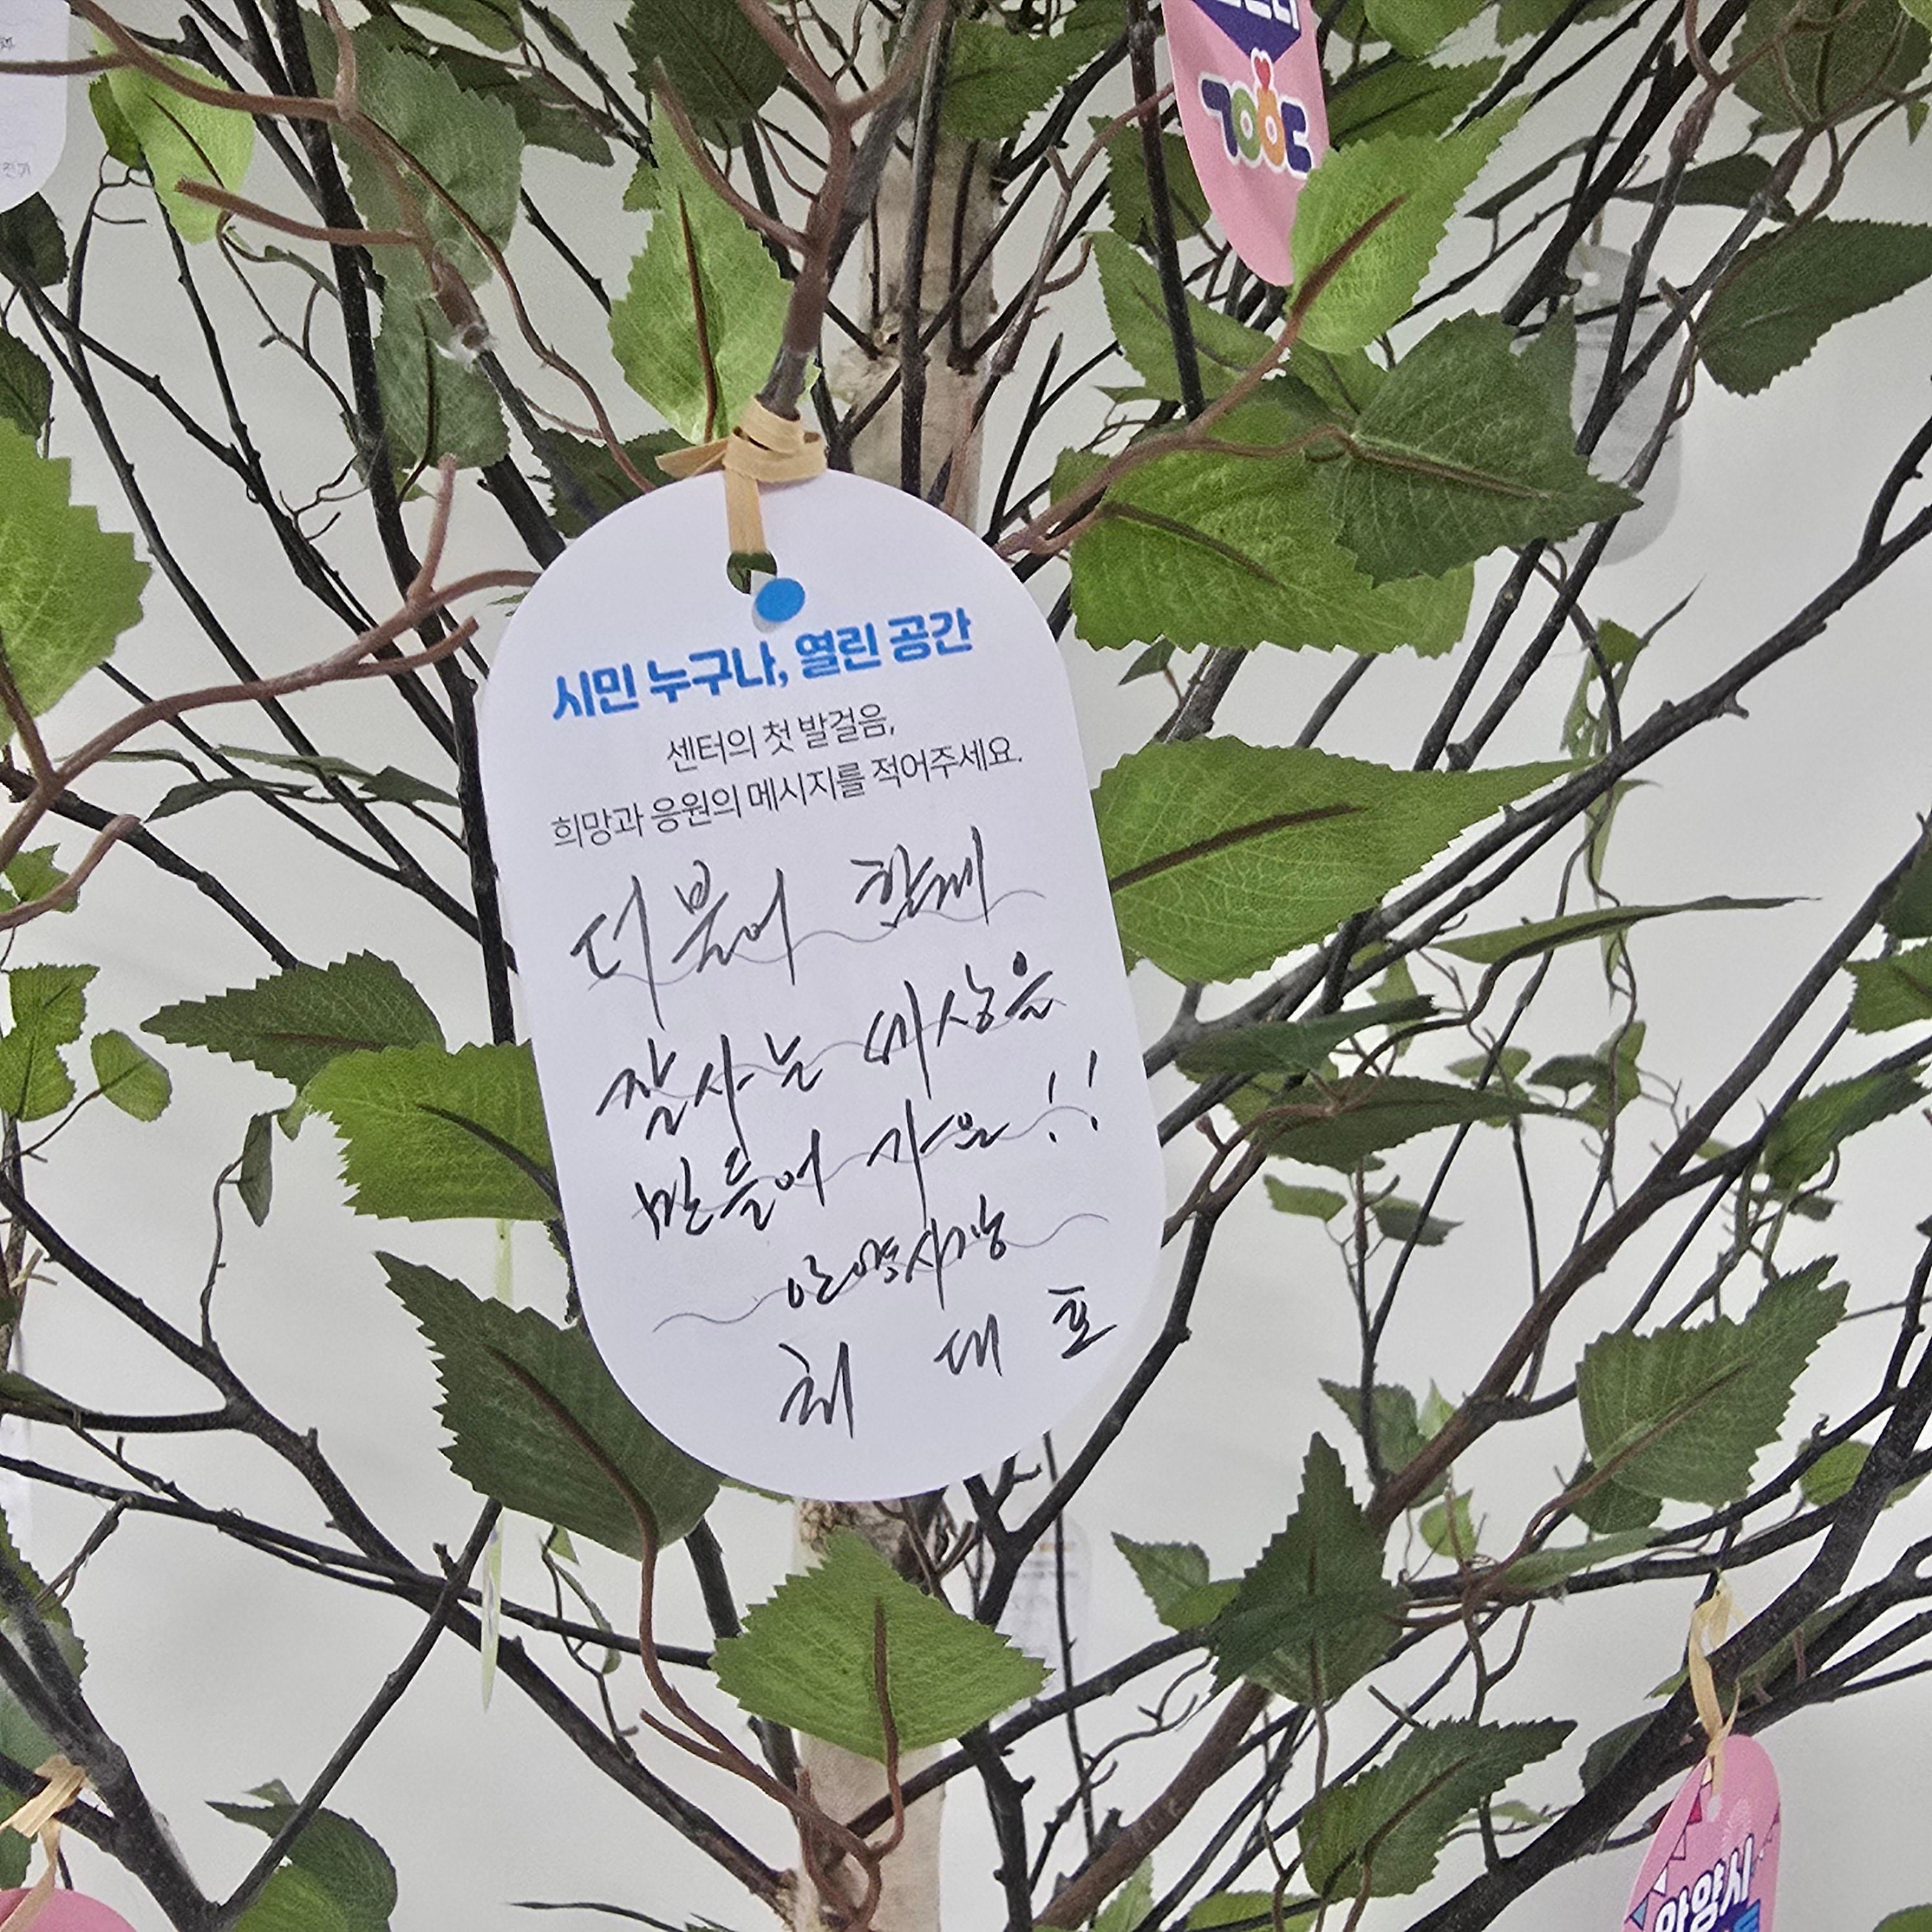 시민 누구나, 열린 공간
센터의 첫 발걸음,
희망과 응원의 메시지를 적어주세요.
더불어 함께
잘사는 세상을
만들어 가요!!
안양시장
최 대 호
안양시